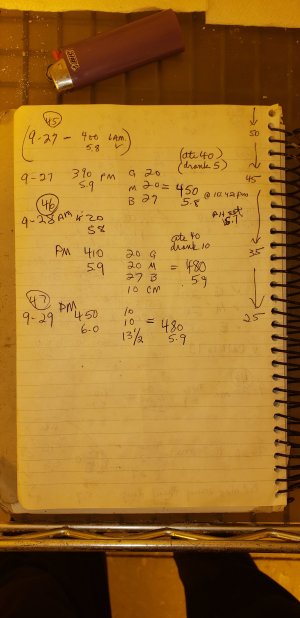 45
(9-27 - 400 1AM)
5.8 ✓
50
(ate 40)
(drank 5)
9-27 390 PM G 20
5.9 M 20 = 450 @ 10:42pm
B 27 5.8
45
46
9-28 AM 420
5.8
PH est
5.1
ate 40
drank 10
PM 410 20 G
5.9 20 M = 480
27 B 5.9
10 CM
35
47
9-29 PM 450 10
6.0 10 = 480
13 1/2 5.9
25